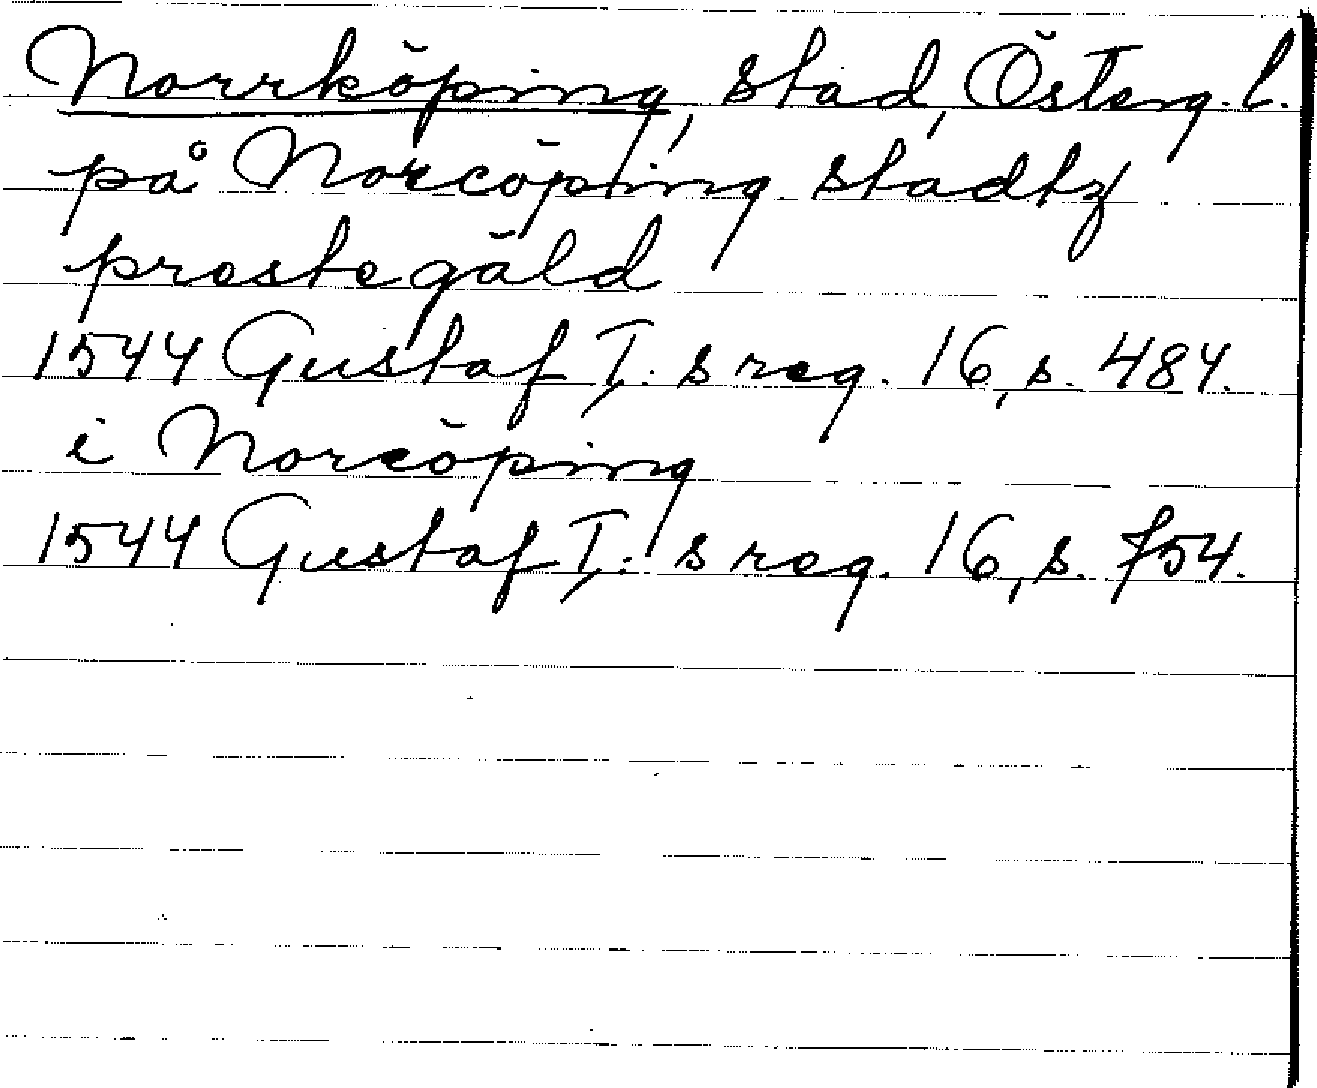 Norrköping, stad, Österg. l.
på Norcöping stadtz
prestegäld
1544 Gustaf I: s reg. 16, s. 484.
i Norcöping
1544 Gustaf I: s reg. 16, s. 754.